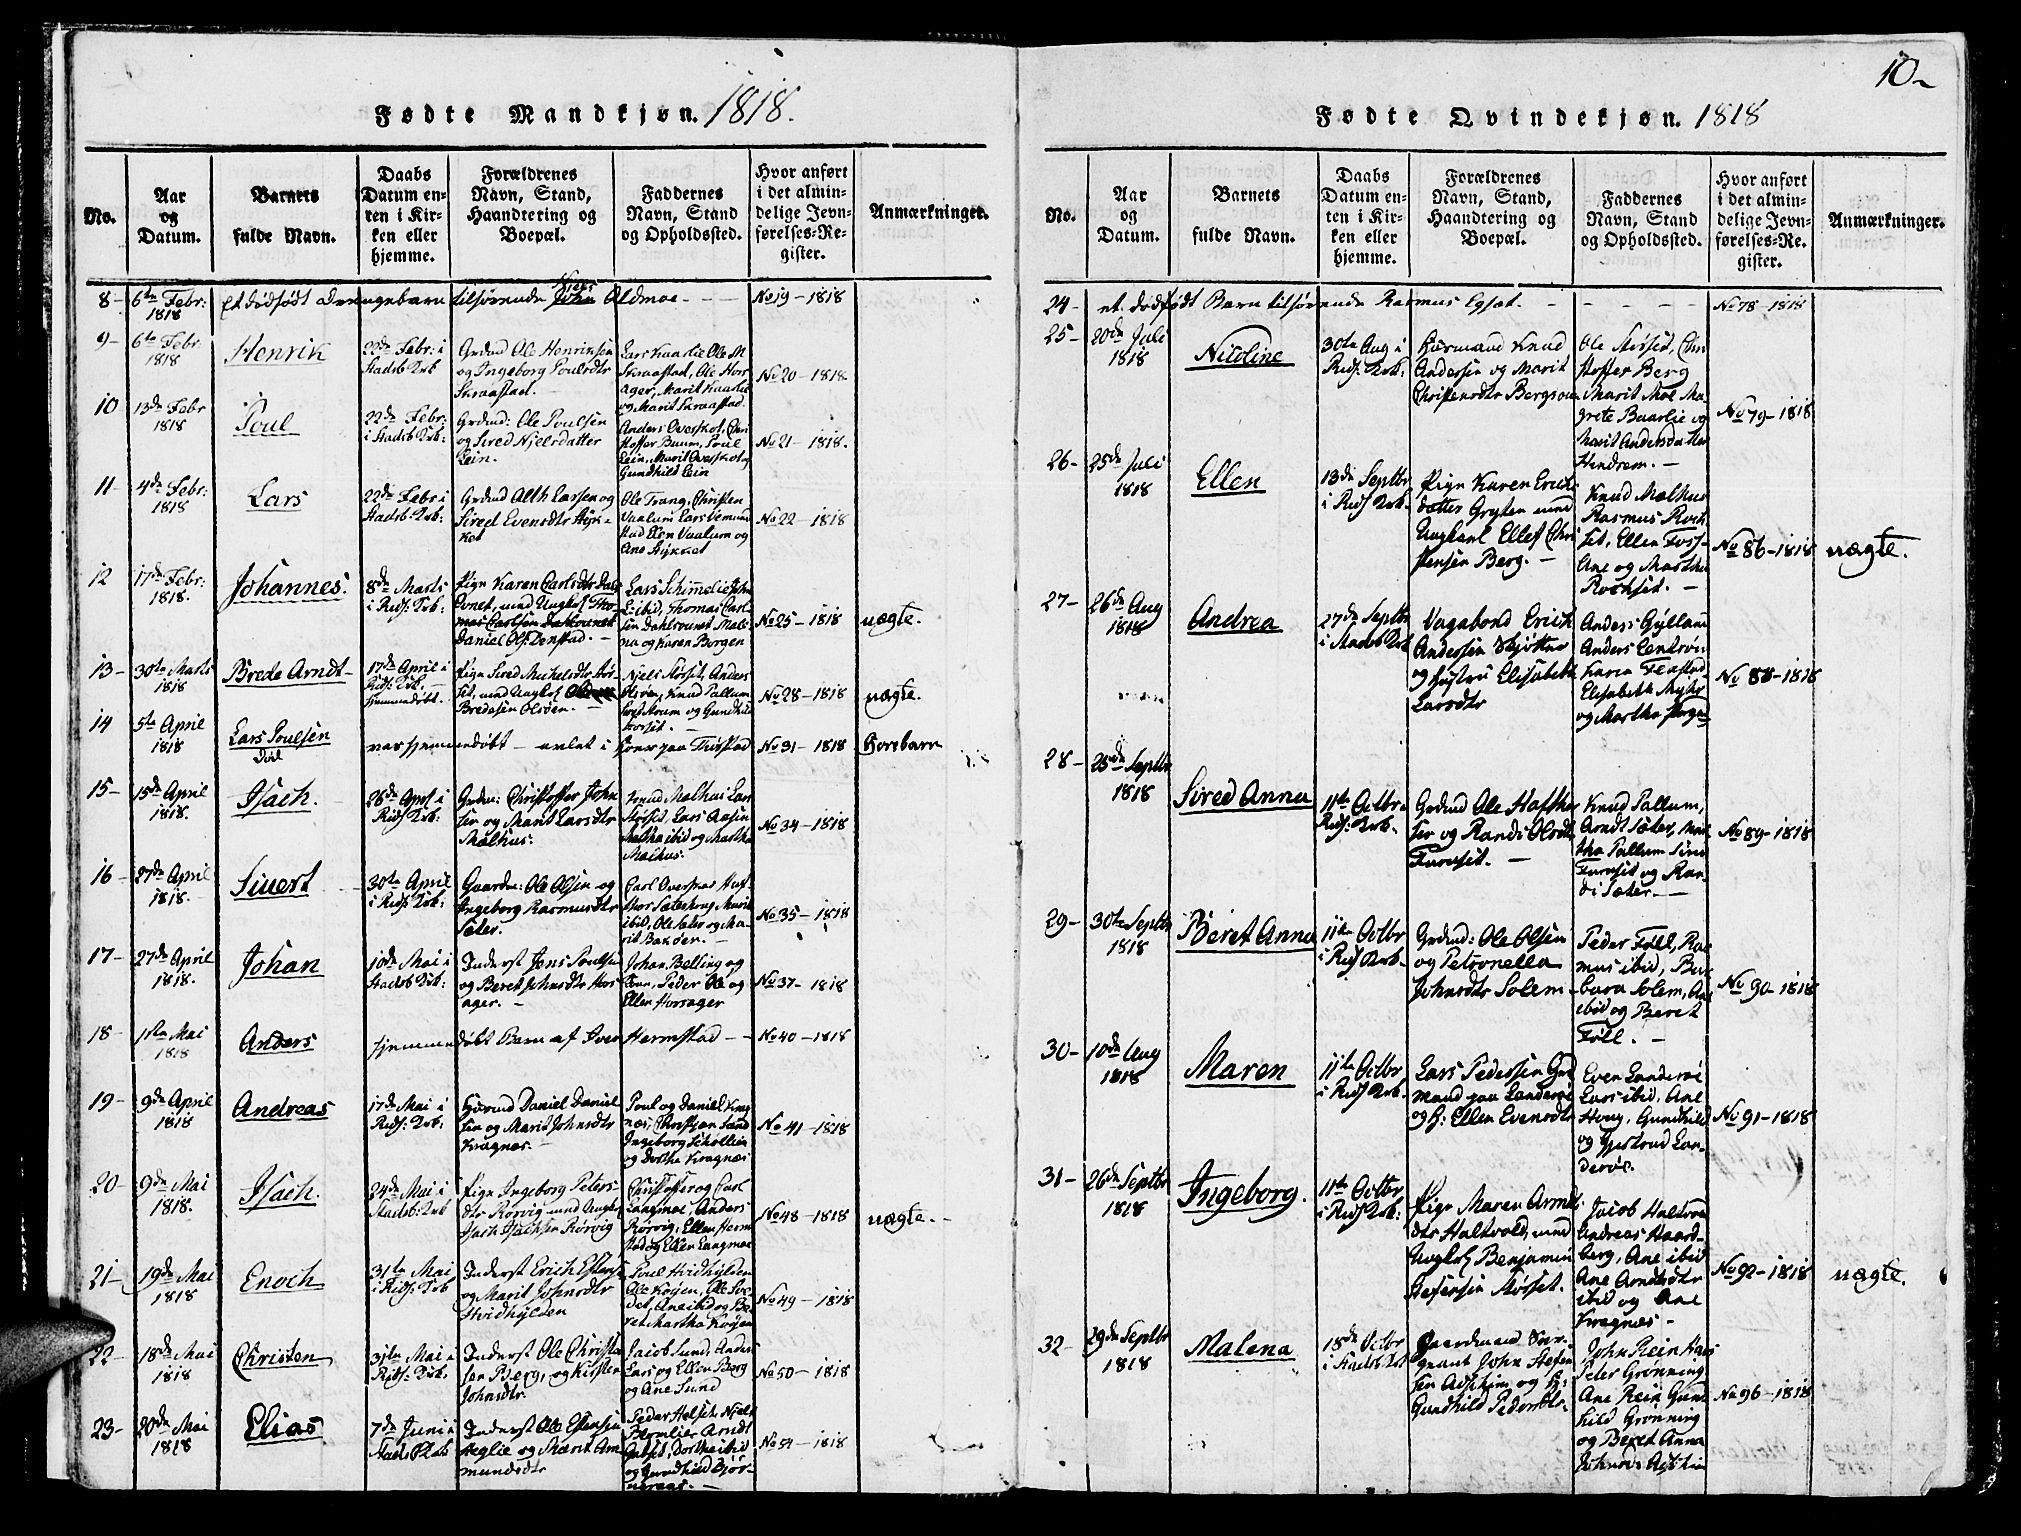 Fødte Mandkjøn. 1818.
No.
Aar
og
Datum.
Barnets
fulde Navn.
Daabs
Datum en-
ten i Kir-
ken eller
hjemme.
Forældrenes
Navn, Stand,
Haandtering og
Boepæl.
Faddernes
Navn, Stand
og Opholdssted.
Hvor anført
i det almin-
delige Jevn-
førelses-Re-
gister.
Anmærkninger.
8- 6te Febr: 1818 et dödfödt Drengebarn tilhörende John Oldmoe - - - No 19-1818
9- 6te Febr 1818
Henrik
22de Febr: i
Stadsb: Krk
Grdmd Ole Henriksen
og Ingeborg Poulsdtr
Skraastad.
Lars Kaarlie Ole M
Skraastad, Ole Hors
ager, Marit Kaarlie
og Marit Skraastad.
No 20-1818
10 13de Febr 1818
Poul
22de Febr:
i Stadsb Krk:
Grdmd: Ole Poulsen
og Sired Njelsdatter
Lein.
Anders Overskot, Chri
stoffer Buum, Poul
Lein, Marit Overskot og
Gundhild Lein
No 21-1818.
11- 4de Febr: 1818
Lars
22de Febr i
Stadsb Krk:
Grdmd Alth Larsen og
Sired Evensdtr
Ole Trang, Christen
Vaalum Lars
Vaalum og
Ane
No 22-1818
12 17de Febr: 1818.
Johannes.
8de Marts
i Risf: Krk:
Pige Karen Carlsdtr
med Ungkrl Tho
mas Carlsen
Daniel Ols Denstad. -
Lars Schimelie John
ibid, Thomas Carl
sen
na og Karen Borgen
No 25-1818
uægte.
13- 30te Marts 1818
Brede Arndt
17de April i
Risf: Krk. -
hjemmedöbt.
Pige Sired Mickelsdtr
set, med Ungkrl
Bredesen Olsöen. -
Njels Störset, Anders
Olsöen, Knud Pallum
og Gundhild
Störset. -
No 28-1818
uægte.
14 5te April 1818
Lars Poulsen
Död
var hjemmedöbt - avlet i Hoer paa Tiirstad
No 31-1818
Horebarn
15- 15de April 1818.
Isach.
26de April i
Risf: Krk:
Grdm: Christoffer John
sen og Marit Larsdtr
Mælhus.
Knud Mælhus Lars
Störset, Lars Aasen
Martha ibid og Martha
Mælhus.
No 34-1818
16- 27de April 1818.
Siuert
30te April
i Risf: Krk:
Gaardm: Ole Olsen og
Ingeborg Rasmusdtr
Sæter.
Carl Overskot
Marit
ibid, Ole Sæter og Ma
rit Baköen. -
No 35-1818
17- 27de April 1818.
Johan
10de Mai i
Stadsb Krk:
Inderst Jens Poulsen
og Beret Johnsdtr Hors
ager. -
Johan Belling og
Kone, Peder Ole og
Ellen Horsager
No 37-1818
18- 1ste Mai 1818
Anders
hjemmedöbt Barn af Iver Hermstad - -
No 40-1818
19- 9de April 1818
Andreas
17de Mai i
Risf: Krk:
Huusmd Daniel Daniel
sen og Marit Johnsdtr
Kragnæs. -
Poul og Daniel Krag
næs, Christian Sand
Ingeborg Schollien
og Dorthe Kragnæs
No 41-1818
20- 9de Mai 1818.
Isach.
24de Mai i
Stadsb: Krk
Pige Ingeborg Peters-
dtr Rörvig med Ungkrl
Isach Isachsen Rörvig
Christoffer og Carl
Langmoe, Anders
Rörvig, Ellen Herm
stad og Ellen Langmoe
No 48-1818
uægte. -
21- 19de Mai 1818
Enoch
31te Mai
i Risf: Krk
Inderst Erich Estens
og Marit Johnsdtr
Hvidhylden
Poul Hvidhylden
Ole Koyen, Ole Soe
det, Ane ibid og Be
ret Martha Koyen
No 49-1818
22- 18de Mai 1818
Christen
31te Mai i
Risf: Krk.
Inderst Ole Christen
sen Berg, og Kirsten
Johnsdtr
Jacob Sund Anders
Lars og Ellen Berg
og Ane Sund
No 50-1818
23- 20de Mai 1818
Elias
7de Juni i
Stads: Krk
Inderst Ole Estensen
Teglie og Marit Am
mundsdtr
Peder Njels
Blomlier Arndt
Dorthe ibid
og Gundhild Björ-
næraas. -
No 51-1818
10-
Fødte Qvindekjøn. 1818
No.
Aar
og
Datum.
Barnets
fulde Navn.
Daabs
Datum en-
ten i Kir-
ken eller
hjemme.
Forældrenes
Navn, Stand,
Haandtering og
Boepæl.
Faddernes
Navn, Stand
og Opholdssted.
Hvor anført
i det almin-
delige Jevn-
førelses-Re-
gister.
Anmærkninger.
24- et dödfödt Barn tilhörende Rasmus Egset. - - - - No 78-1818
25- 20de Juli 1818
Nicoline
30te Aug i
Risf: Krk:
Huusmand Knud
Andersen og Marit
Christensdtr Bergsaun
Ole Störset, Chri
stoffer Berg
Marit Moe Ma
grete Baarlie og
Marit Andersdatter
Hindrem. -
No 79-1818
26- 25de Juli 1818
Ellen
13de Septbr
i Risf Krk.
Pige Karen Erichs
datter Gryten med
Ungkarl Ellef Chri
stensen Berg. -
Knud Mælhus
Rasmus Rock
set, Ellen Foss
Ane og Martha
Rockset. -
No 86-1818
uægte.
27- 26de Aug 1818
Andrea
27de Septbr
i Stadsb Krk
Vagabond Erich
Andersen Skjötten
og Hustru Elisabeth
Larsdtr
Anders Gyllam
Anders Landröe
Karen Flastad
Elisabeth Myhr
og Martha Haga
No 88-1818
28- 25de Septbr 1818
Sired Anna
11te Octbr
Risf: Krk.
Grdmd Ole Haftor
sen og Randi Olsdtr
Furuset. -
Knud Pallum,
Arndt Sæter, Mar
tha Pallum Sired
Furuset og Ran
di Sæter. -
No 89-1818
29- 30te Septbr 1818
Beret Anna
11te Octbr
i Risf Krk.
Grdmd: Ole Olsen
og Petronella
Johnsdtr Solem
Peder Föll, Ras
mus ibid, Bar
bara Solem, Ane
ibid og Beret
Föll. -
No 90-1818
30- 10de Aug 1818
Maren
11te Octbr
i Risf Krk.
Lars Pedersen Grd
mand paa Landeröe
og H: Ellen Evensdtr
Even Landeröe
Lars ibid, Ane
Houg, Gundhild
og Gjertrud Lan-
deröe.
No 91-1818
31- 26de Septbr 1818
Ingeborg.
11te Octbr
i Risf Krk:
Pige Maren Arndts
dtr Haltvold, med
Ungkrl Benjamin
Stefensen Störset.
Jacob Haltvold
Andreas Haard-
berg, Ane ibid
Ane Arndtsdtr
ibid og Ane
Kragnæs -
No 92-1818
uægte.
32- 29de Septbr 1818
Malena
18de Octbr
i Stadsb Krk
Gaardmand Ser-
geant John Stefen
sen Aschim og H:
Gundhild Pedersdtr.
John Rein Hans
Peter Grønning
Ane Rein Gund
hild Grønning
og Beret Anna
Johnsds Aschim
No 96-1818